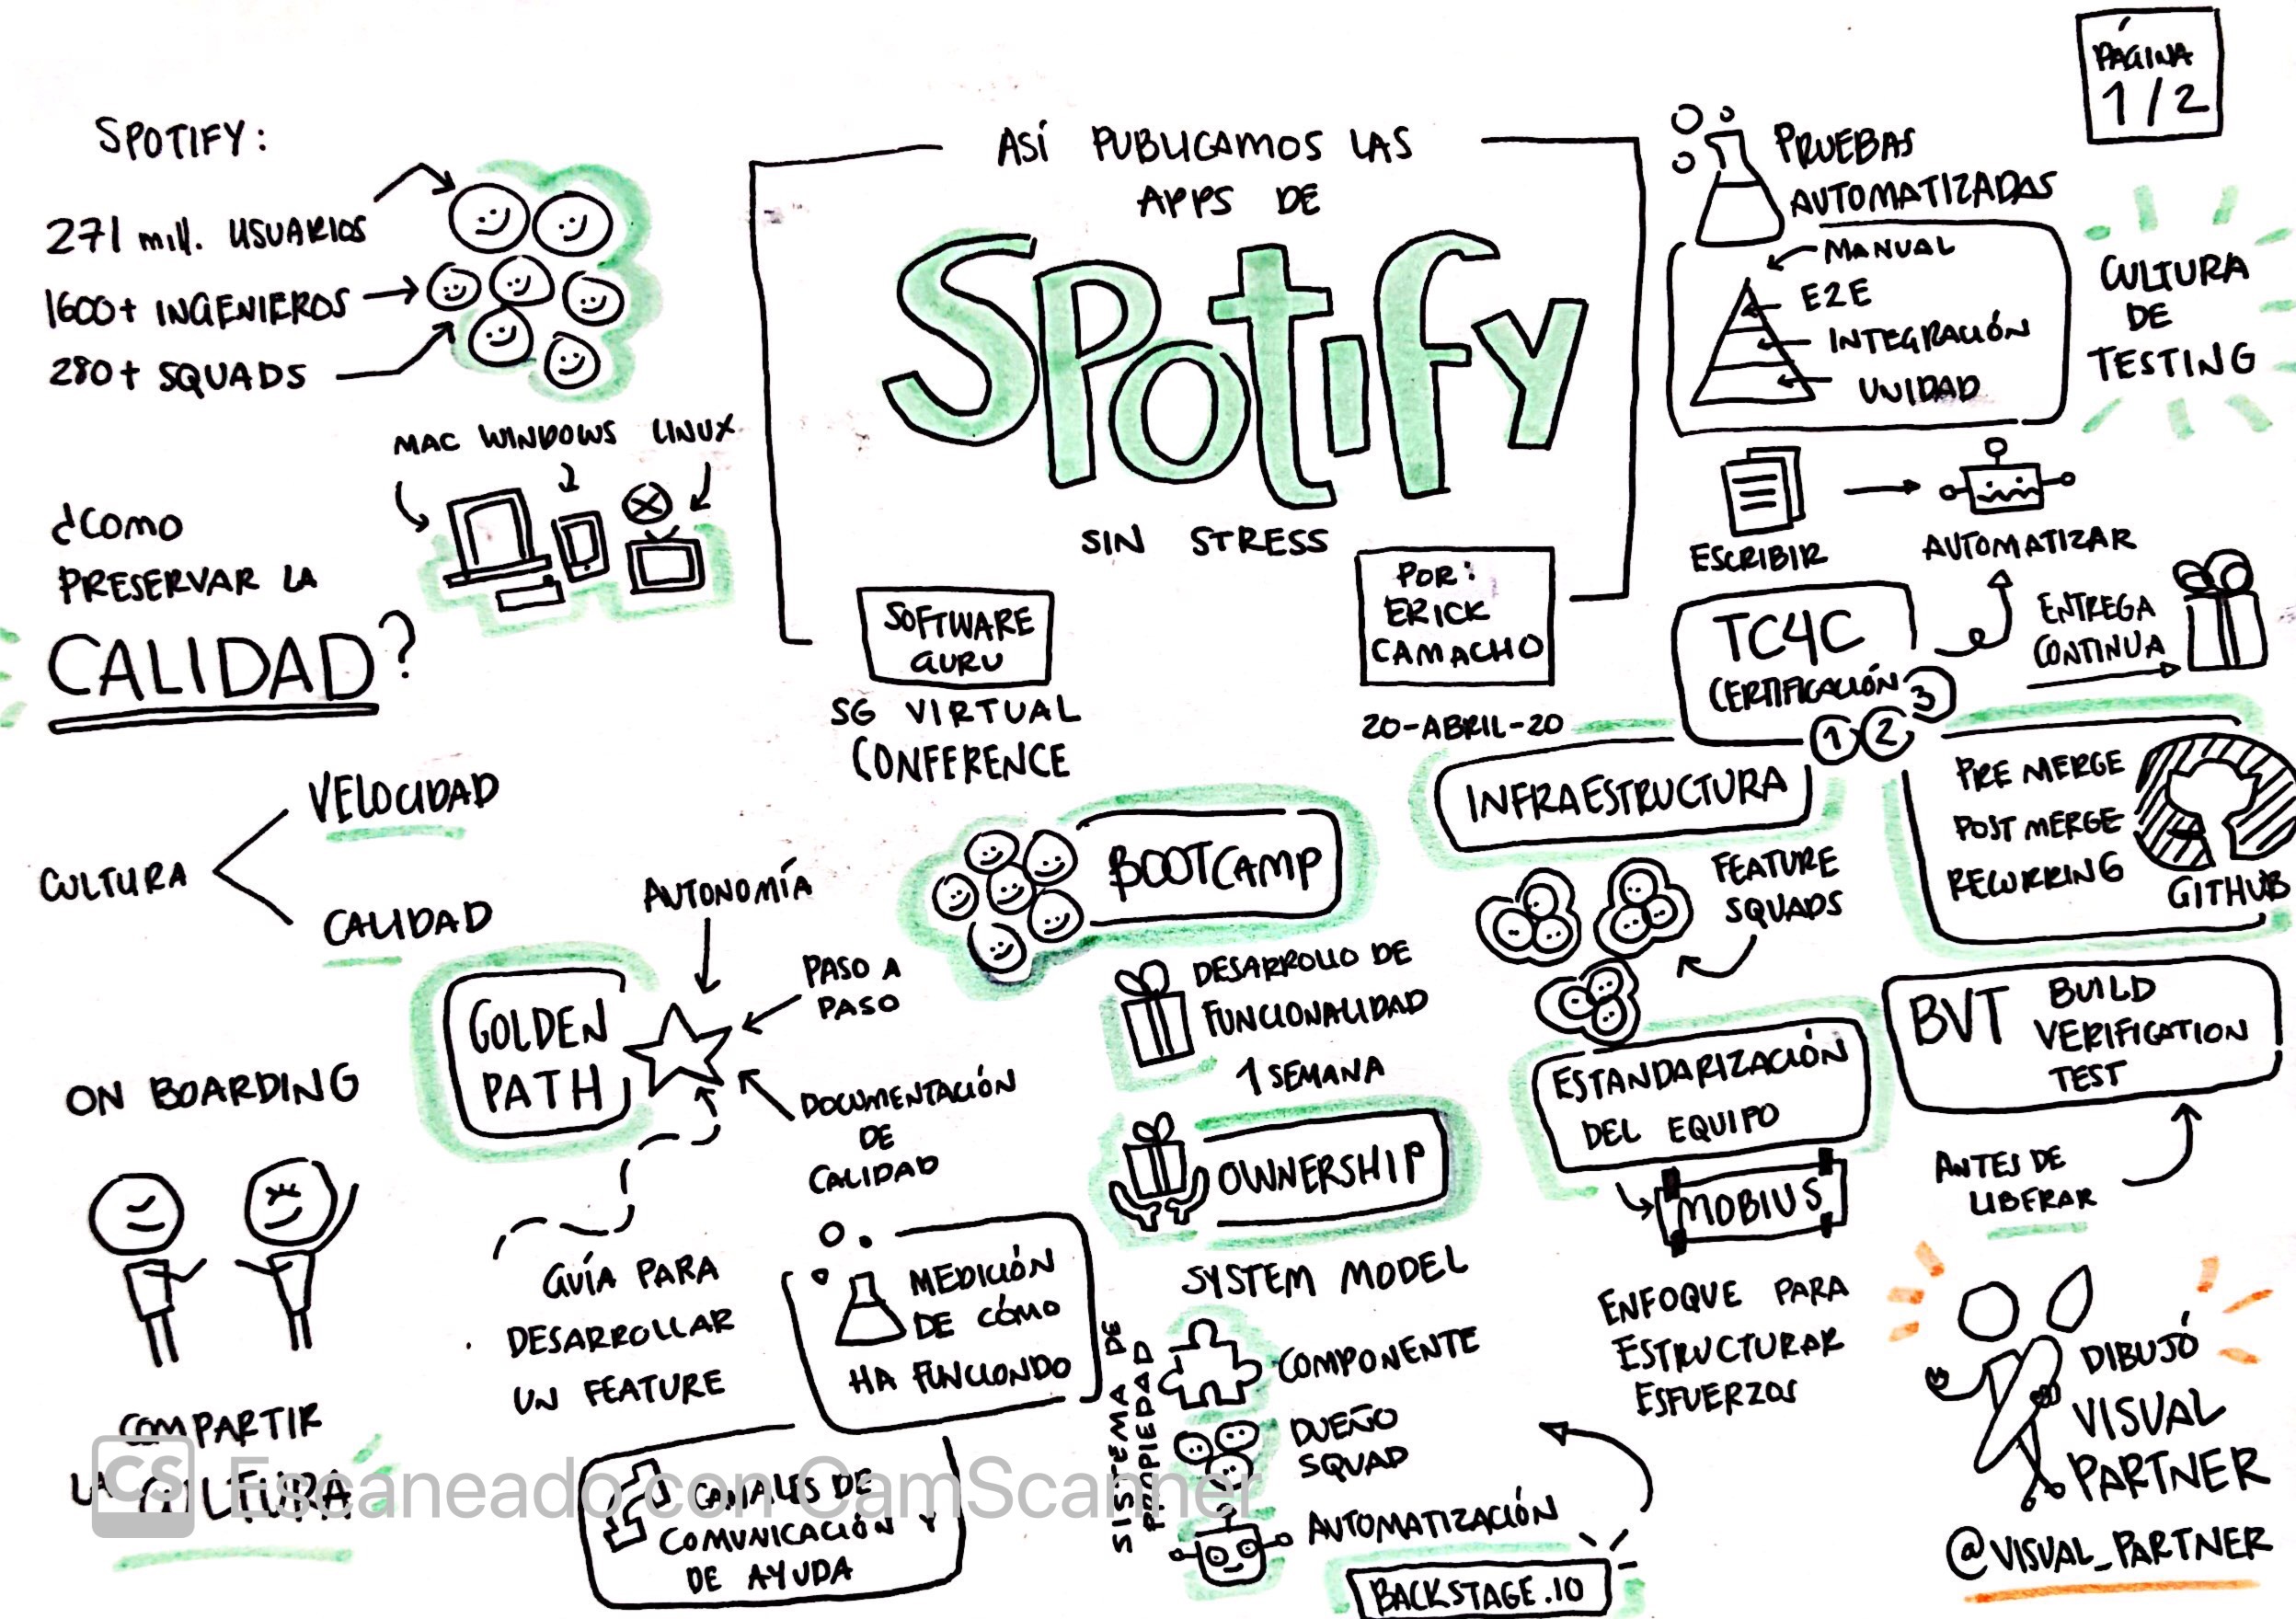 PÁGINA
1/2
SPOTIFY:
271 mill. USUARIOS
1600+ INGENIEROS
280+ SQUADS
MAC WINDOWS LINUX
¿COMO
PRESERVAR LA
CALIDAD?
ASÍ PUBLICAMOS LAS
APPS DE
SPOTIFY
SIN STRESS
SOFTWARE
GURU
SG VIRTUAL
CONFERENCE
POR:
ERICK
CAMACHO
20-ABRIL-20
PRUEBAS
AUTOMATIZADAS
MANUAL
E2E
INTEGRACIÓN
UNIDAD
CULTURA
DE
TESTING
ESCRIBIR
AUTOMATIZAR
TC4C
CERTIFICACIÓN
1 2 3
ENTREGA
CONTINUA
INFRAESTRUCTURA
PRE MERGE
POST MERGE
RECURRING
GITHUB
CULTURA
VELOCIDAD
CALIDAD
AUTONOMÍA
GOLDEN
PATH
PASO A
PASO
DOCUMENTACIÓN
DE
CALIDAD
GUÍA PARA
DESARROLLAR
UN FEATURE
ON BOARDING
COMPARTIR
LA CULTURA
MEDICIÓN
DE CÓMO
HA FUNCIONDO
CANALES DE
COMUNICACIÓN Y
DE AYUDA
BOOTCAMP
DESARROLLO DE
FUNCIONALIDAD
1 SEMANA
OWNERSHIP
SYSTEM MODEL
SISTEMA DE
PROPIEDAD
COMPONENTE
DUEÑO
SQUAD
AUTOMATIZACIÓN
BACKSTAGE.IO
FEATURE
SQUADS
ESTANDARIZACIÓN
DEL EQUIPO
MOBIUS
ENFOQUE PARA
ESTRUCTURAR
ESFUERZOS
BVT BUILD
VERIFICATION
TEST
ANTES DE
LIBERAR
DIBUJÓ
VISUAL
PARTNER
@VISUAL_PARTNER
CS Escaneado con CamScanner